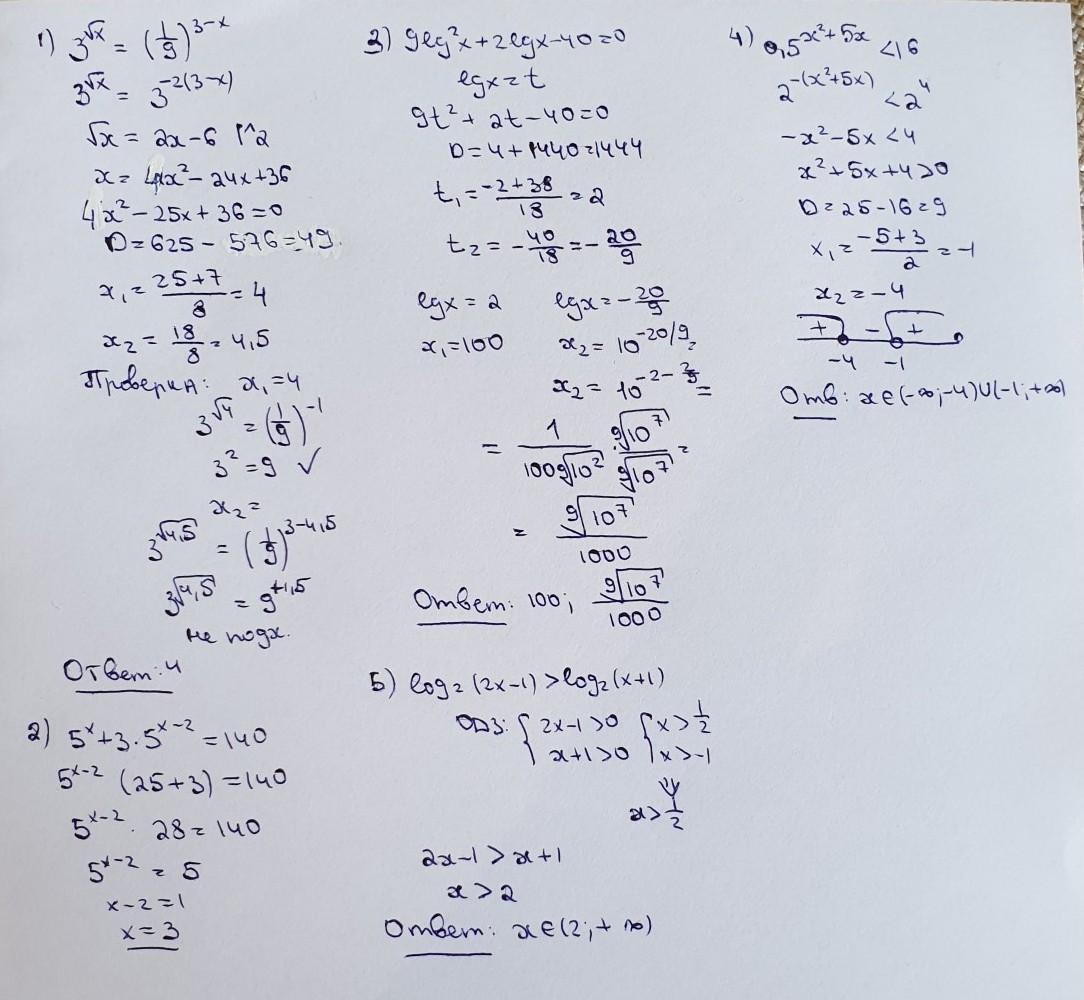 1) 3^√x = (1/9)^3-x
3^√x = 3^-2(3-x)
√x = 2x-6 |^2
x = 4x² - 24x + 36
4x² - 25x + 36 = 0
D = 625 - 576 = 49
x₁ = 25+7/8 = 4
x₂ = 18/8 = 4,5
Проверка: x₁ = 4
3^√4 = (1/9)^-1
3² = 9 ✓
x₂ =
3^√4,5 = (1/9)^3-4,5
3^√4,5 = 9^+1,5
не подх.
Ответ: 4
2) 5^x + 3·5^x-2 = 140
5^x-2 (25+3) = 140
5^x-2 · 28 = 140
5^x-2 = 5
x-2 = 1
x = 3
3) 9lg²x + 2lgx - 40 = 0
lgx = t
9t² + 2t - 40 = 0
D = 4 + 1440 = 1444
t₁ = -2+38/18 = 2
t₂ = -40/18 = -20/9
lgx = 2 lgx = -20/9
x₁ = 100 x₂ = 10^-20/9
x₂ = 10^-2-2/9 =
= 1/100 ⁹√10² · ⁹√10⁷/⁹√10⁷ =
= ⁹√10⁷/1000
Ответ: 100; ⁹√10⁷/1000
4) 0,5^x²+5x < 16
2^-(x²+5x) < 2⁴
-x² - 5x < 4
x² + 5x + 4 > 0
D = 25 - 16 = 9
x₁ = -5+3/2 = -1
x₂ = -4
+ - +
-4 -1
Отв: x ∈ (-∞; -4) ∪ (-1; +∞)
5) log₂(2x-1) > log₂(x+1)
ОДЗ: { 2x-1 > 0 { x > 1/2
x+1 > 0 x > -1
⇓
x > 1/2
2x-1 > x+1
x > 2
Ответ: x ∈ (2; +∞)